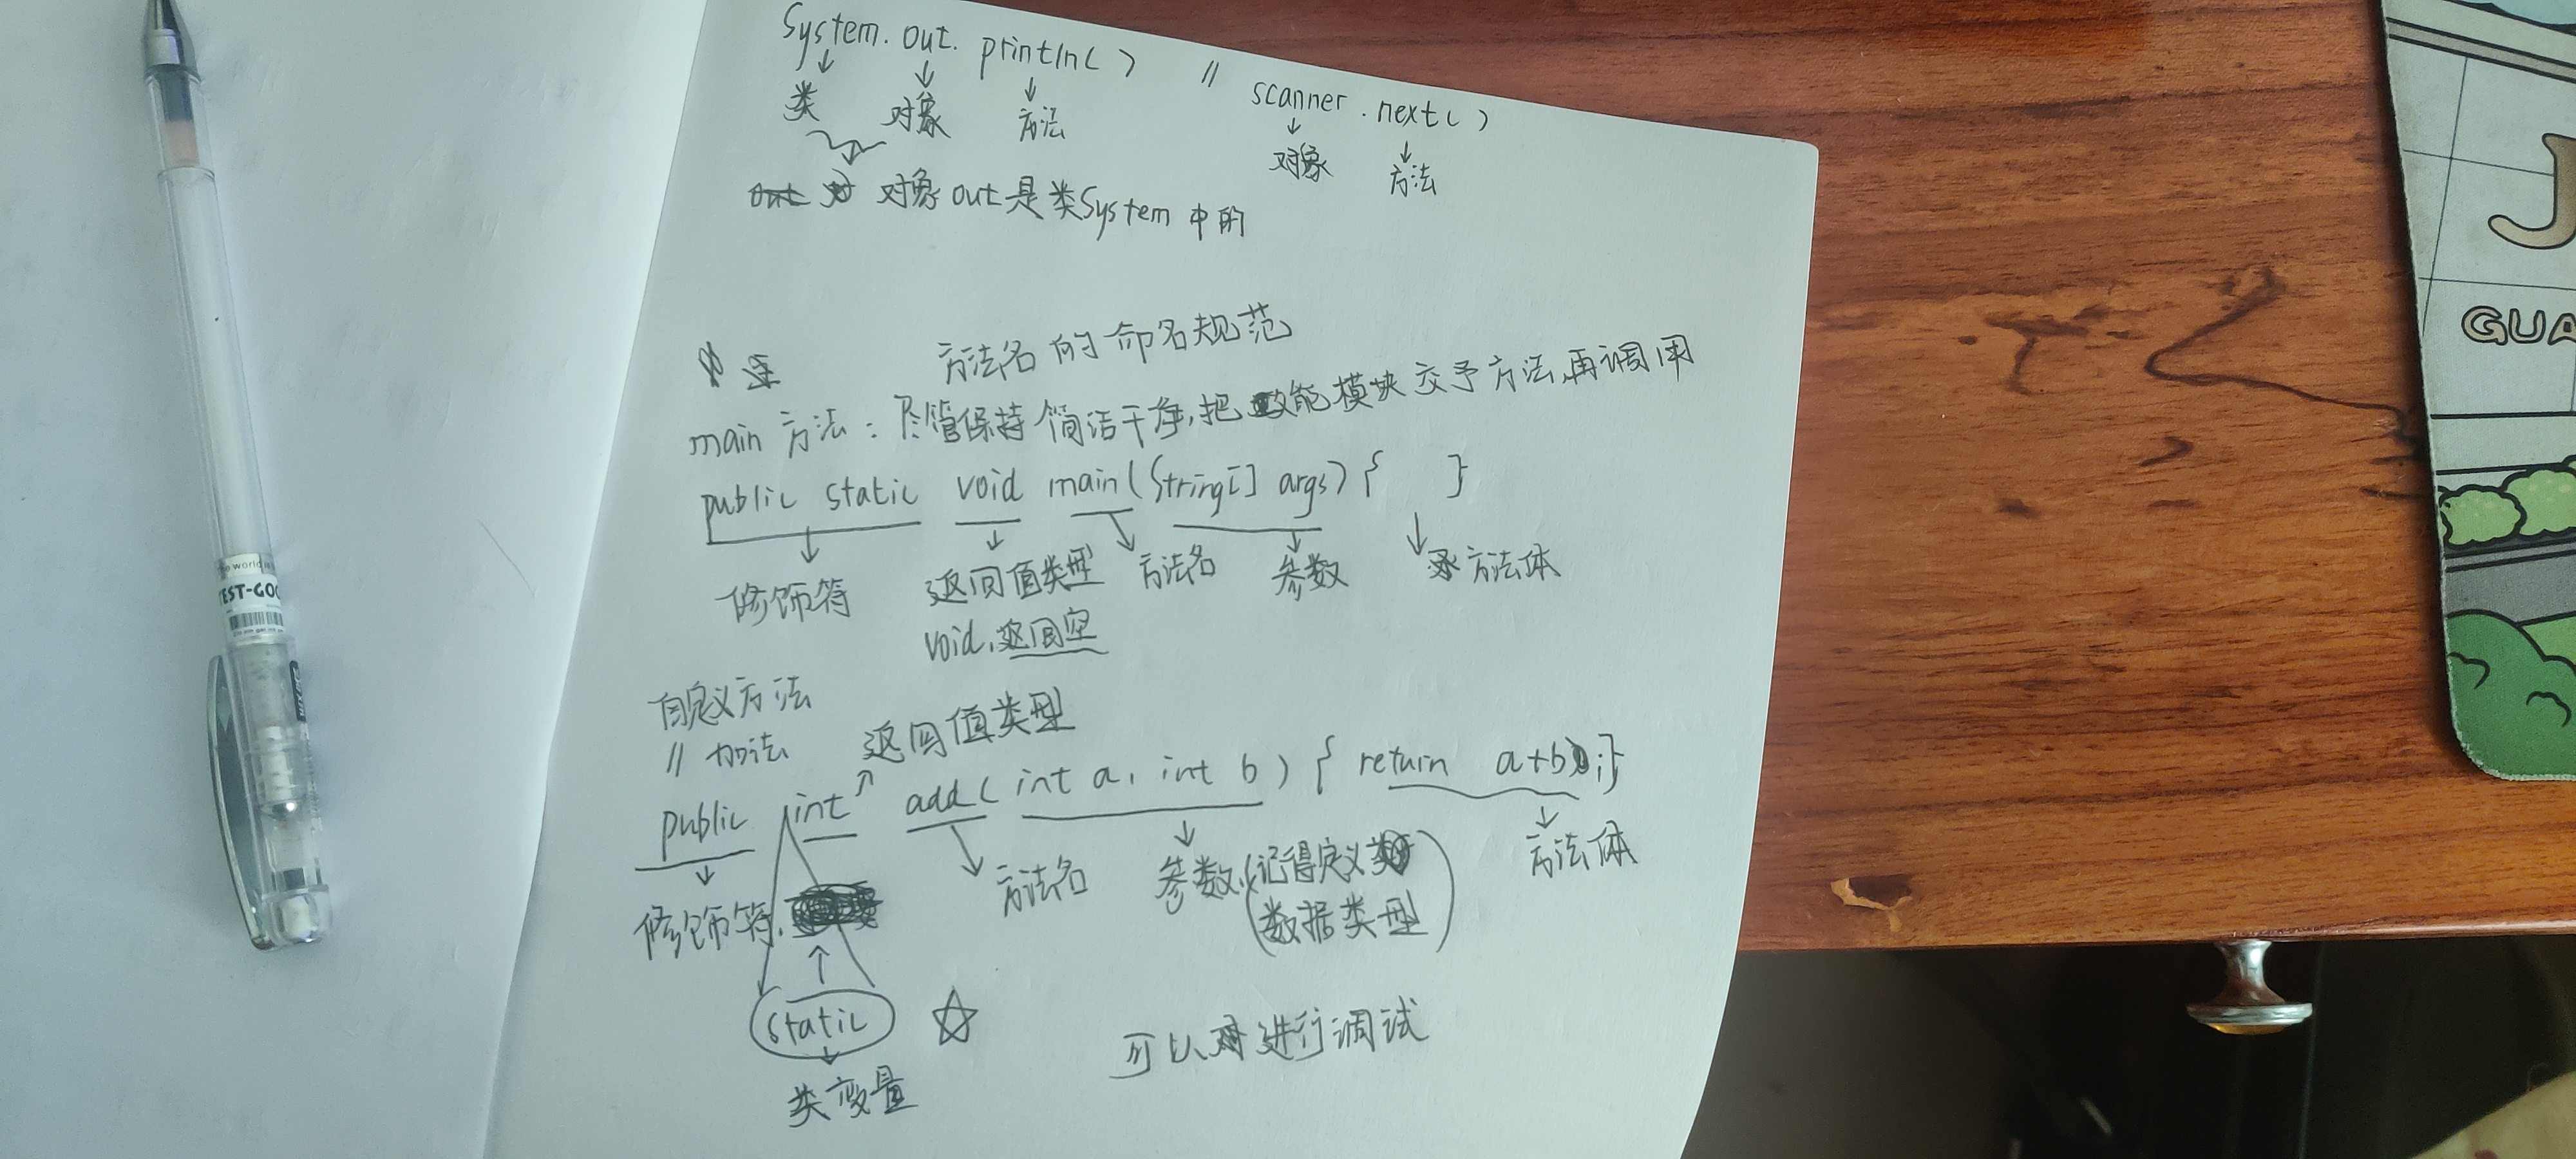 System.out.println( )  //  scanner.next( )
类 对象 方法 对象 方法
对象out是类System中的
方法名的命名规范
main 方法：尽管保持简洁干净,把功能模块交予方法,再调用
public static void main(String[] args) { }
修饰符 返回值类型 方法名 参数 方法体
void,返回空
自定义方法
// 加法 返回值类型
public int add( int a, int b ) { return a+b;}
修饰符, 方法名 参数,(记得定义 方法体
数据类型)
static
可以 进行调试
类变量
GUA
TEST-GO